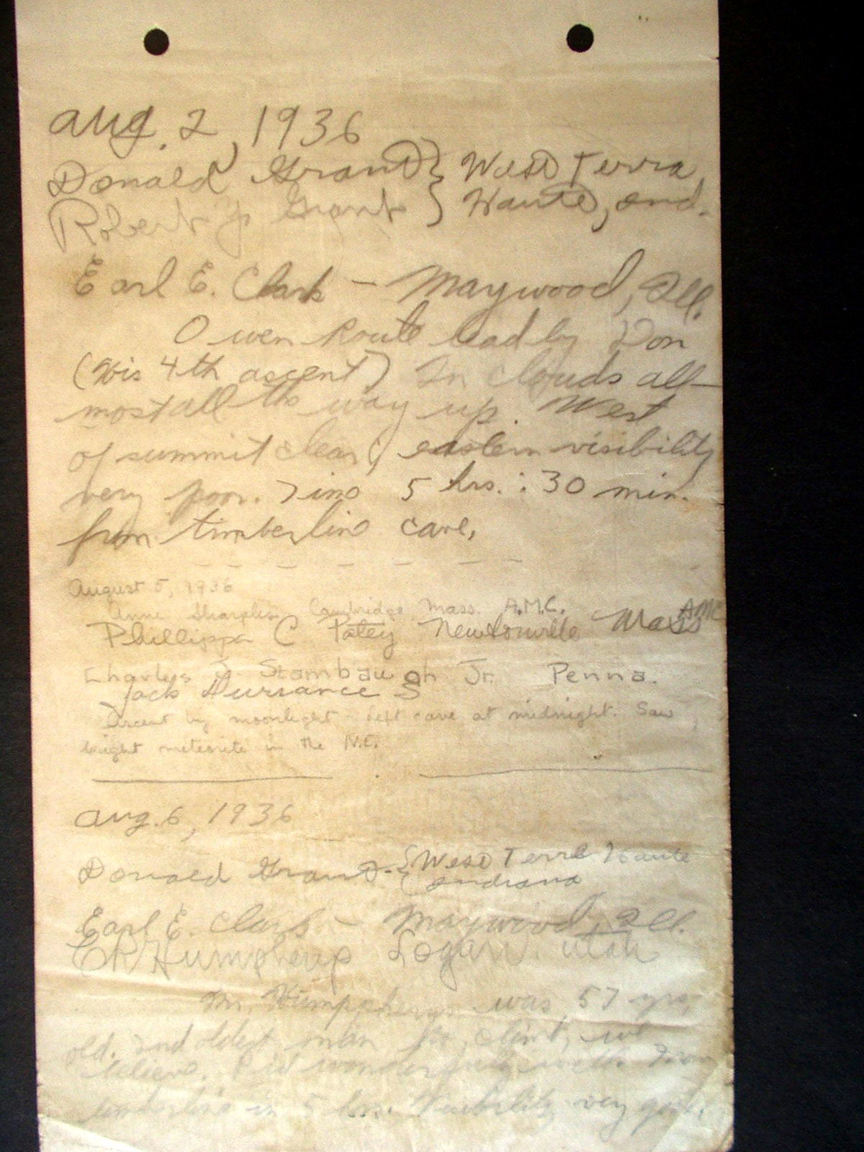 Aug. 2, 1936
Donald Grant } West Terra
Robert Y. Grant } Haute, Ind.
Earl E. Clark - Maywood, Ill.
Owen Route lead by Don
(His 4th ascent) In clouds all-
most all the way up. West
of summit clear, eastern visibility
very poor. Time 5 hrs. : 30 min.
from timberline cave.
August 5, 1936
Anne Sharples Cambridge Mass. A.M.C.
Phillippa C Patey Newtonville Mass AMC
Charles J. Stambaugh Jr. Penna.
Jack Durrance
Ascent by moonlight - left cave at midnight. Saw
bright meteorite in the N.E.
Aug. 6, 1936
Donald Grant - { West Terre Haute
Indiana
Earl E. Clark - Maywood, Ill.
E R Humpherys Logan Utah
Mr. Humpherys was 57 yrs.
old. 2nd oldest man to climb, we
believe. Did wonderfully with from
timberline in 5 hrs. Visibility very good.